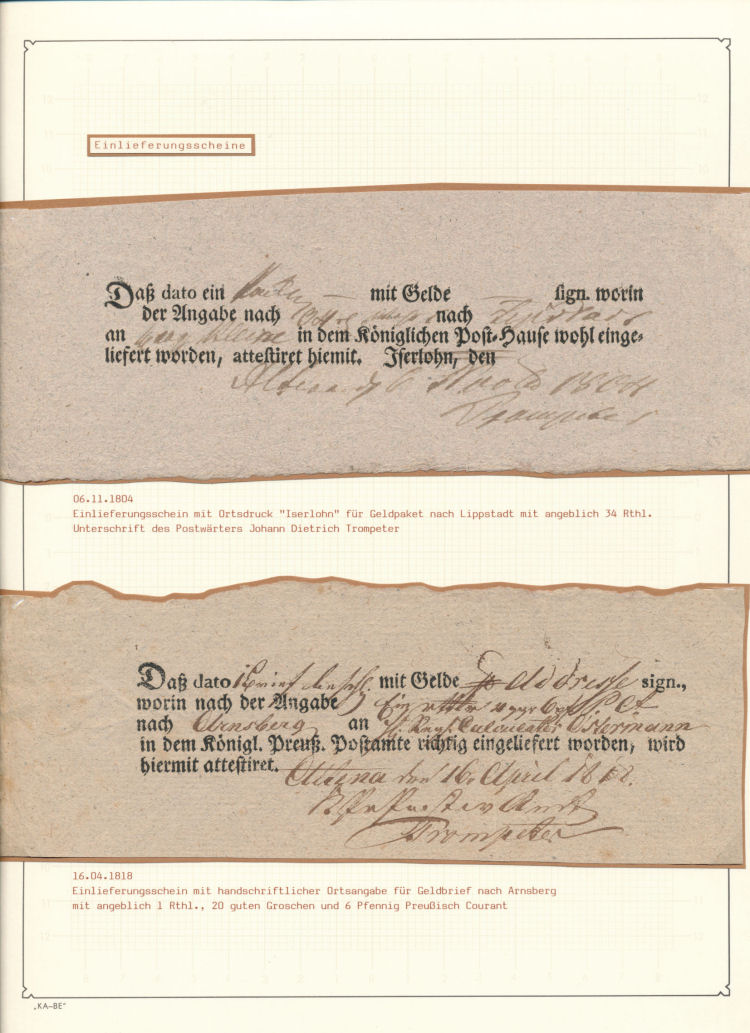 Einlieferungsscheine
Daß dato ein mit Gelde sign. worin
der Angabe nach nach Lipstadt
an in dem Königlichen Post-Hause wohl einge-
liefert worden, attestiret hiemit. Iserlohn, den
Altena 1804
Trompeter
06.11.1804
Einlieferungsschein mit Ortsdruck "Iserlohn" für Geldpaket nach Lippstadt mit angeblich 34 Rthl.
Unterschrift des Postwärters Johann Dietrich Trompeter
Daß dato 1 Brief mit Gelde Addresse sign.,
worin nach der Angabe
nach Arnsberg an Calculator Ostermann
in dem Königl. Preuß. Postamte richtig eingeliefert worden, wird
hiermit attestiret. Altena den 16. April
Trompeter
16.04.1818
Einlieferungsschein mit handschriftlicher Ortsangabe für Geldbrief nach Arnsberg
mit angeblich 1 Rthl., 20 guten Groschen und 6 Pfennig Preußisch Courant
„KA-BE“